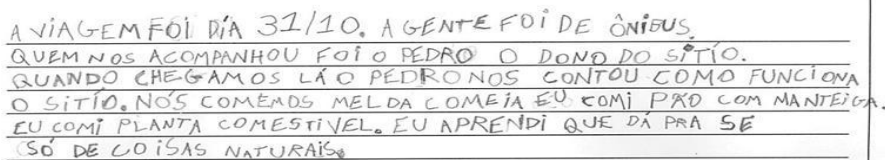 A VIAGEM FOI DIA 31/10. A GENTE FOI DE ÔNIBUS.
QUEM NOS ACOMPANHOU FOI O PEDRO O DONO DO SÍTIO.
QUANDO CHEGAMOS LÁ O PEDRO NOS CONTOU COMO FUNCIONA
O SITÍO. NÓS COMEMOS MEL DA COMEIA EU COMI PÃO COM MANTEIGA.
EU COMI PLANTA COMESTIVEL. EU APRENDI QUE DÁ PRA SE
SÓ DE COISAS NATURAIS.